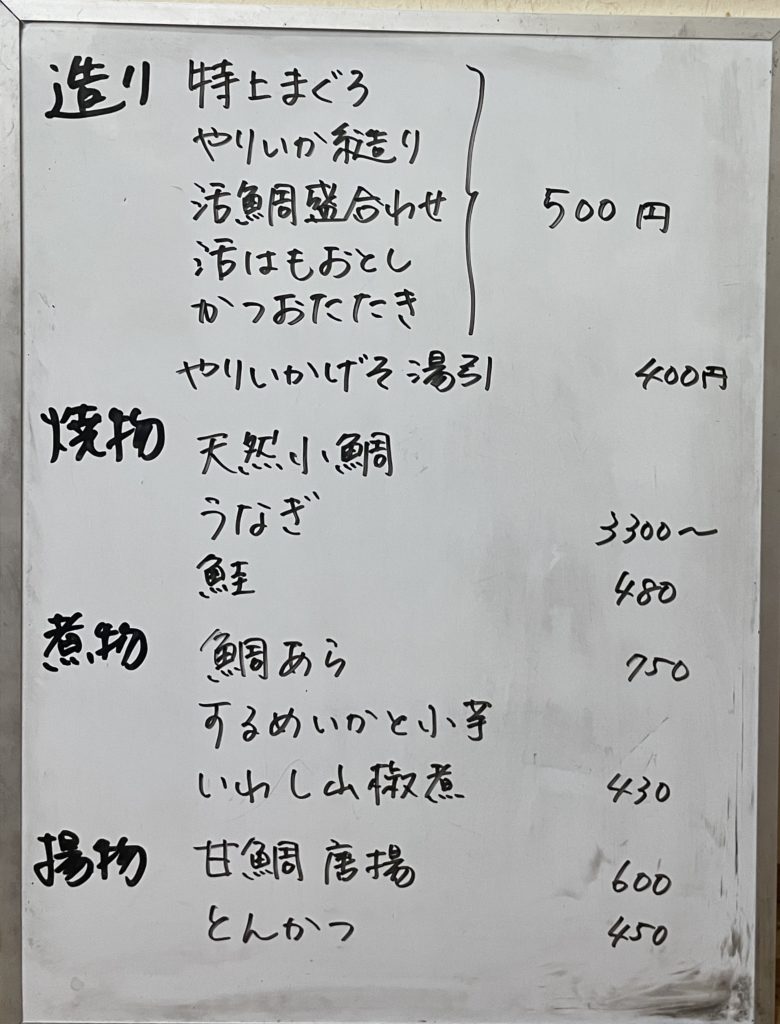 造り 特上まぐろ
やりいか糸造り
活鯛盛合わせ 500円
活はもおとし
かつおたたき
やりいかげそ湯引 400円
焼物 天然小鯛
うなぎ 3300〜
鮭 480
煮物 鯛あら 750
するめいかと小芋
いわし山椒煮 430
揚物 甘鯛唐揚 600
とんかつ 450